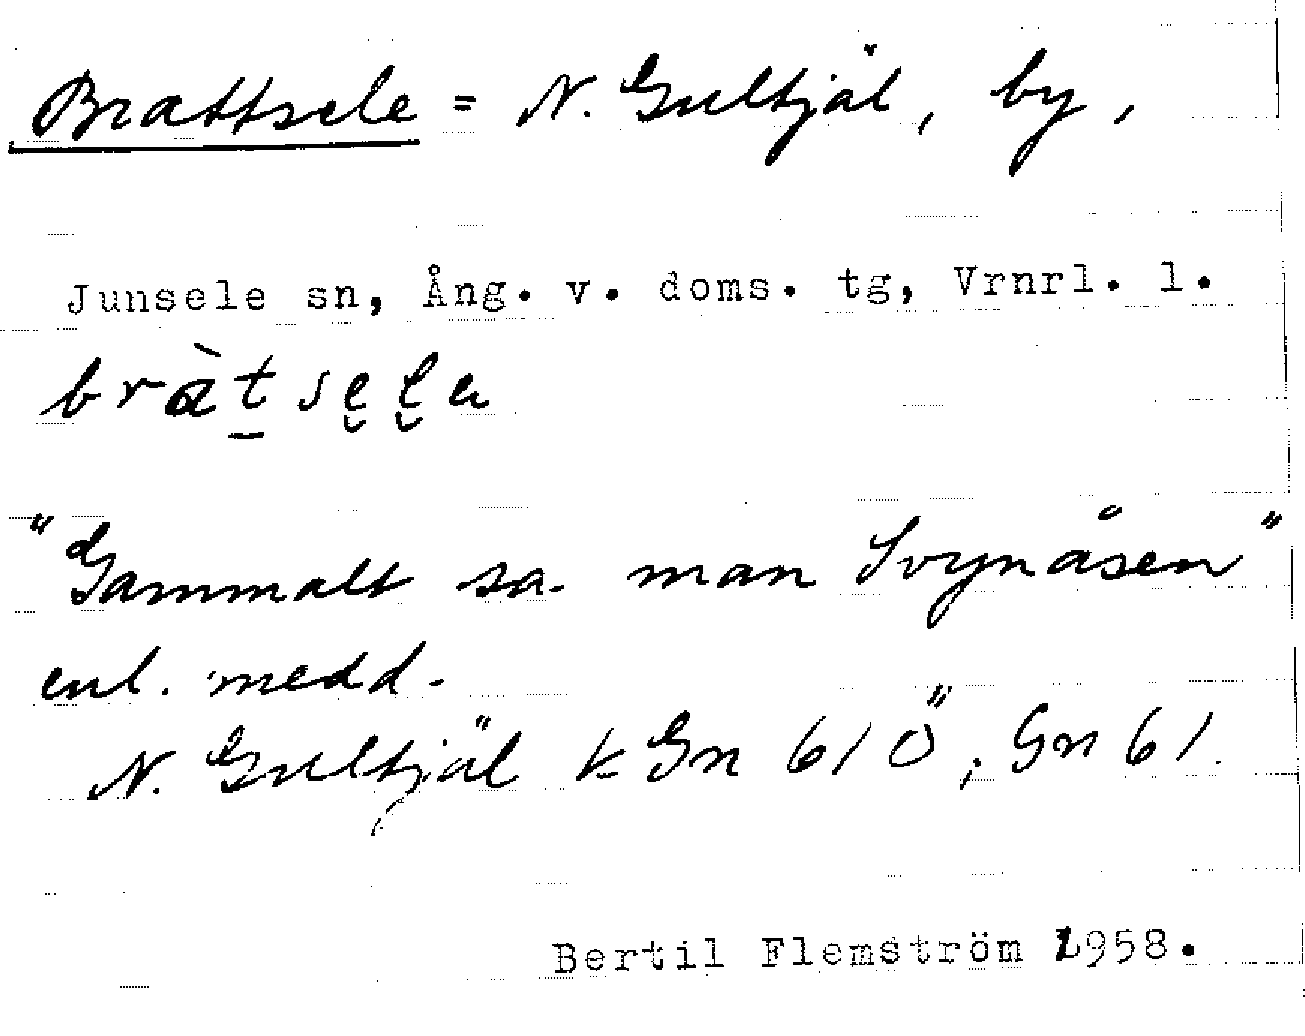 Brattsele = N. Gulltjäl, by,
Junsele sn, Ång. v. doms. tg, Vrnrl. l.
bràt̲se̮l̮a
"Gammalt sa. man Svynåsen"
enl. medd.
N. Gulltjäl k Gn 61 Ö; Gn 61.
Bertil Flemström 1958.